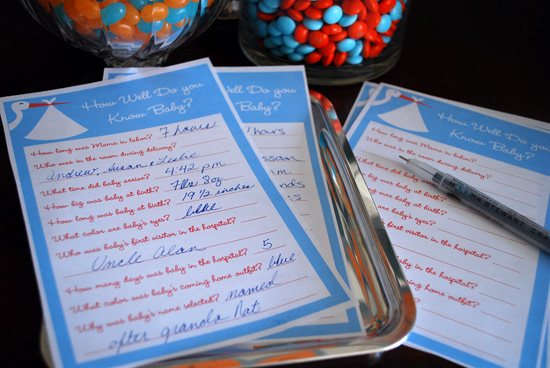 How Well Do you
Know Baby?
How long was Mama in labor? 7 hours
Who was in the room during delivery?
Andrew, Susan & Leslie
What time did baby arrive? 4:42 pm
How big was baby at birth? 7lbs 3oz.
How long was baby at birth? 19 1/2 inches
What color are baby's eyes? blue
Who was baby's first visitor in the hospital?
Uncle Alan
How many days was baby in the hospital? 5
What color was baby's coming home outfit? blue
Why was baby's name selected? named
after grandpa Nat
How Well Do you
Know Baby?
hours
How Well Do you
Know Baby?
How long was Mama in labor?
Who was in the room during delivery?
What time did baby arrive?
How big was baby at birth?
How long was baby at birth?
What color are baby's eyes?
Who was baby's first visitor in the hospital?
How many days was baby in the hospital?
What color was baby's coming home outfit?
Why was baby's name selected?